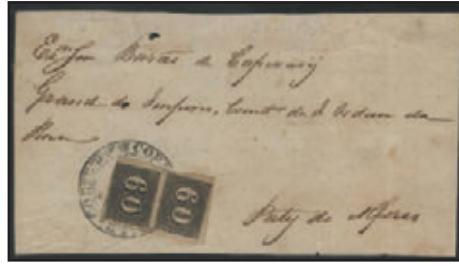 Exmo Snr Barão de Capivary
Grande do Imperio, Comdr da I. Ordem da
Rosa
60 60
Paty do Alferes